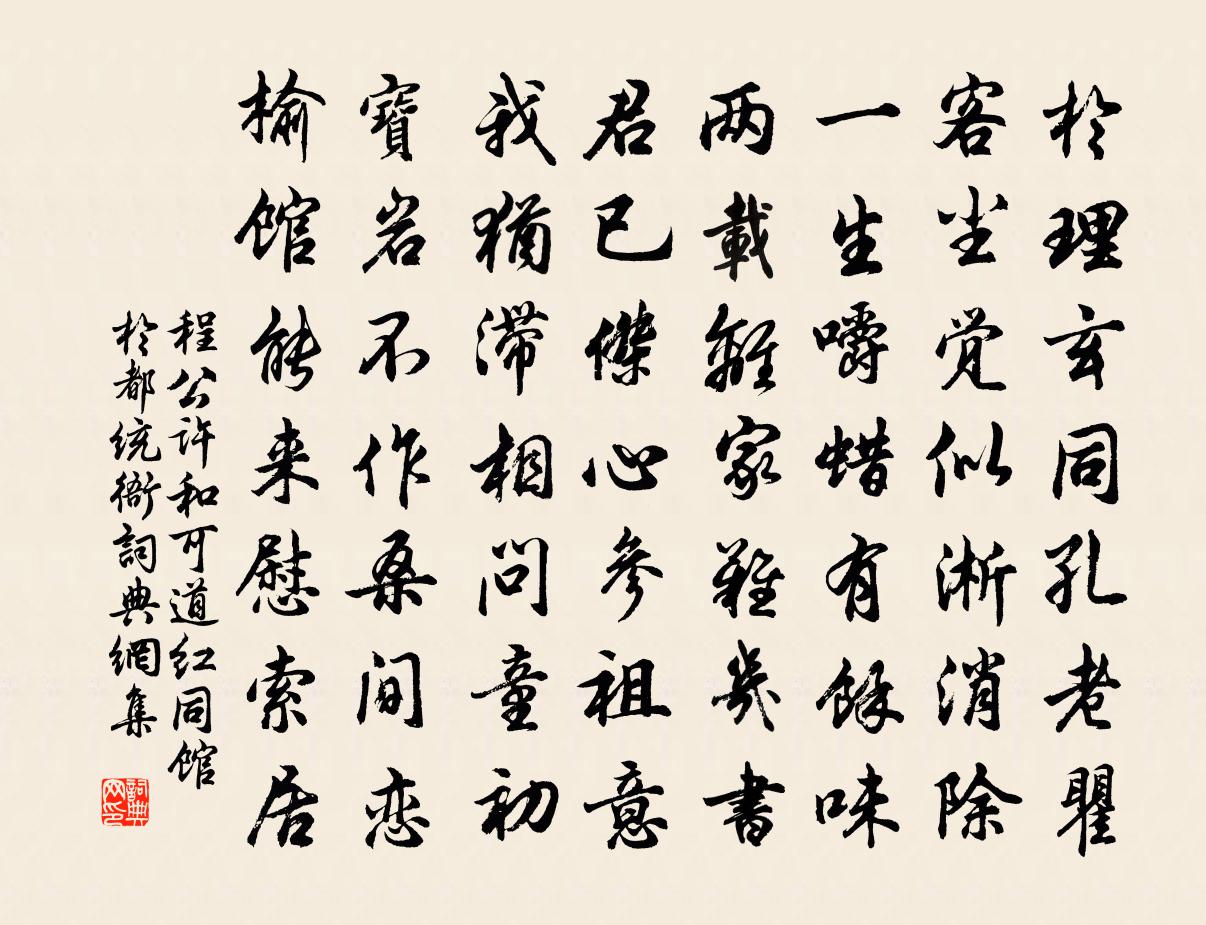 於理玄同孔老瞿
客尘觉似淅消除
一生嚼蜡有馀味
两載離家難幾書
君已傑心參祖意
我猶滞相问童初
寶岩不作桑间恋
榆馆能来慰索居
程公许和可道红同馆
於都統衙詞典網集
詞典网印